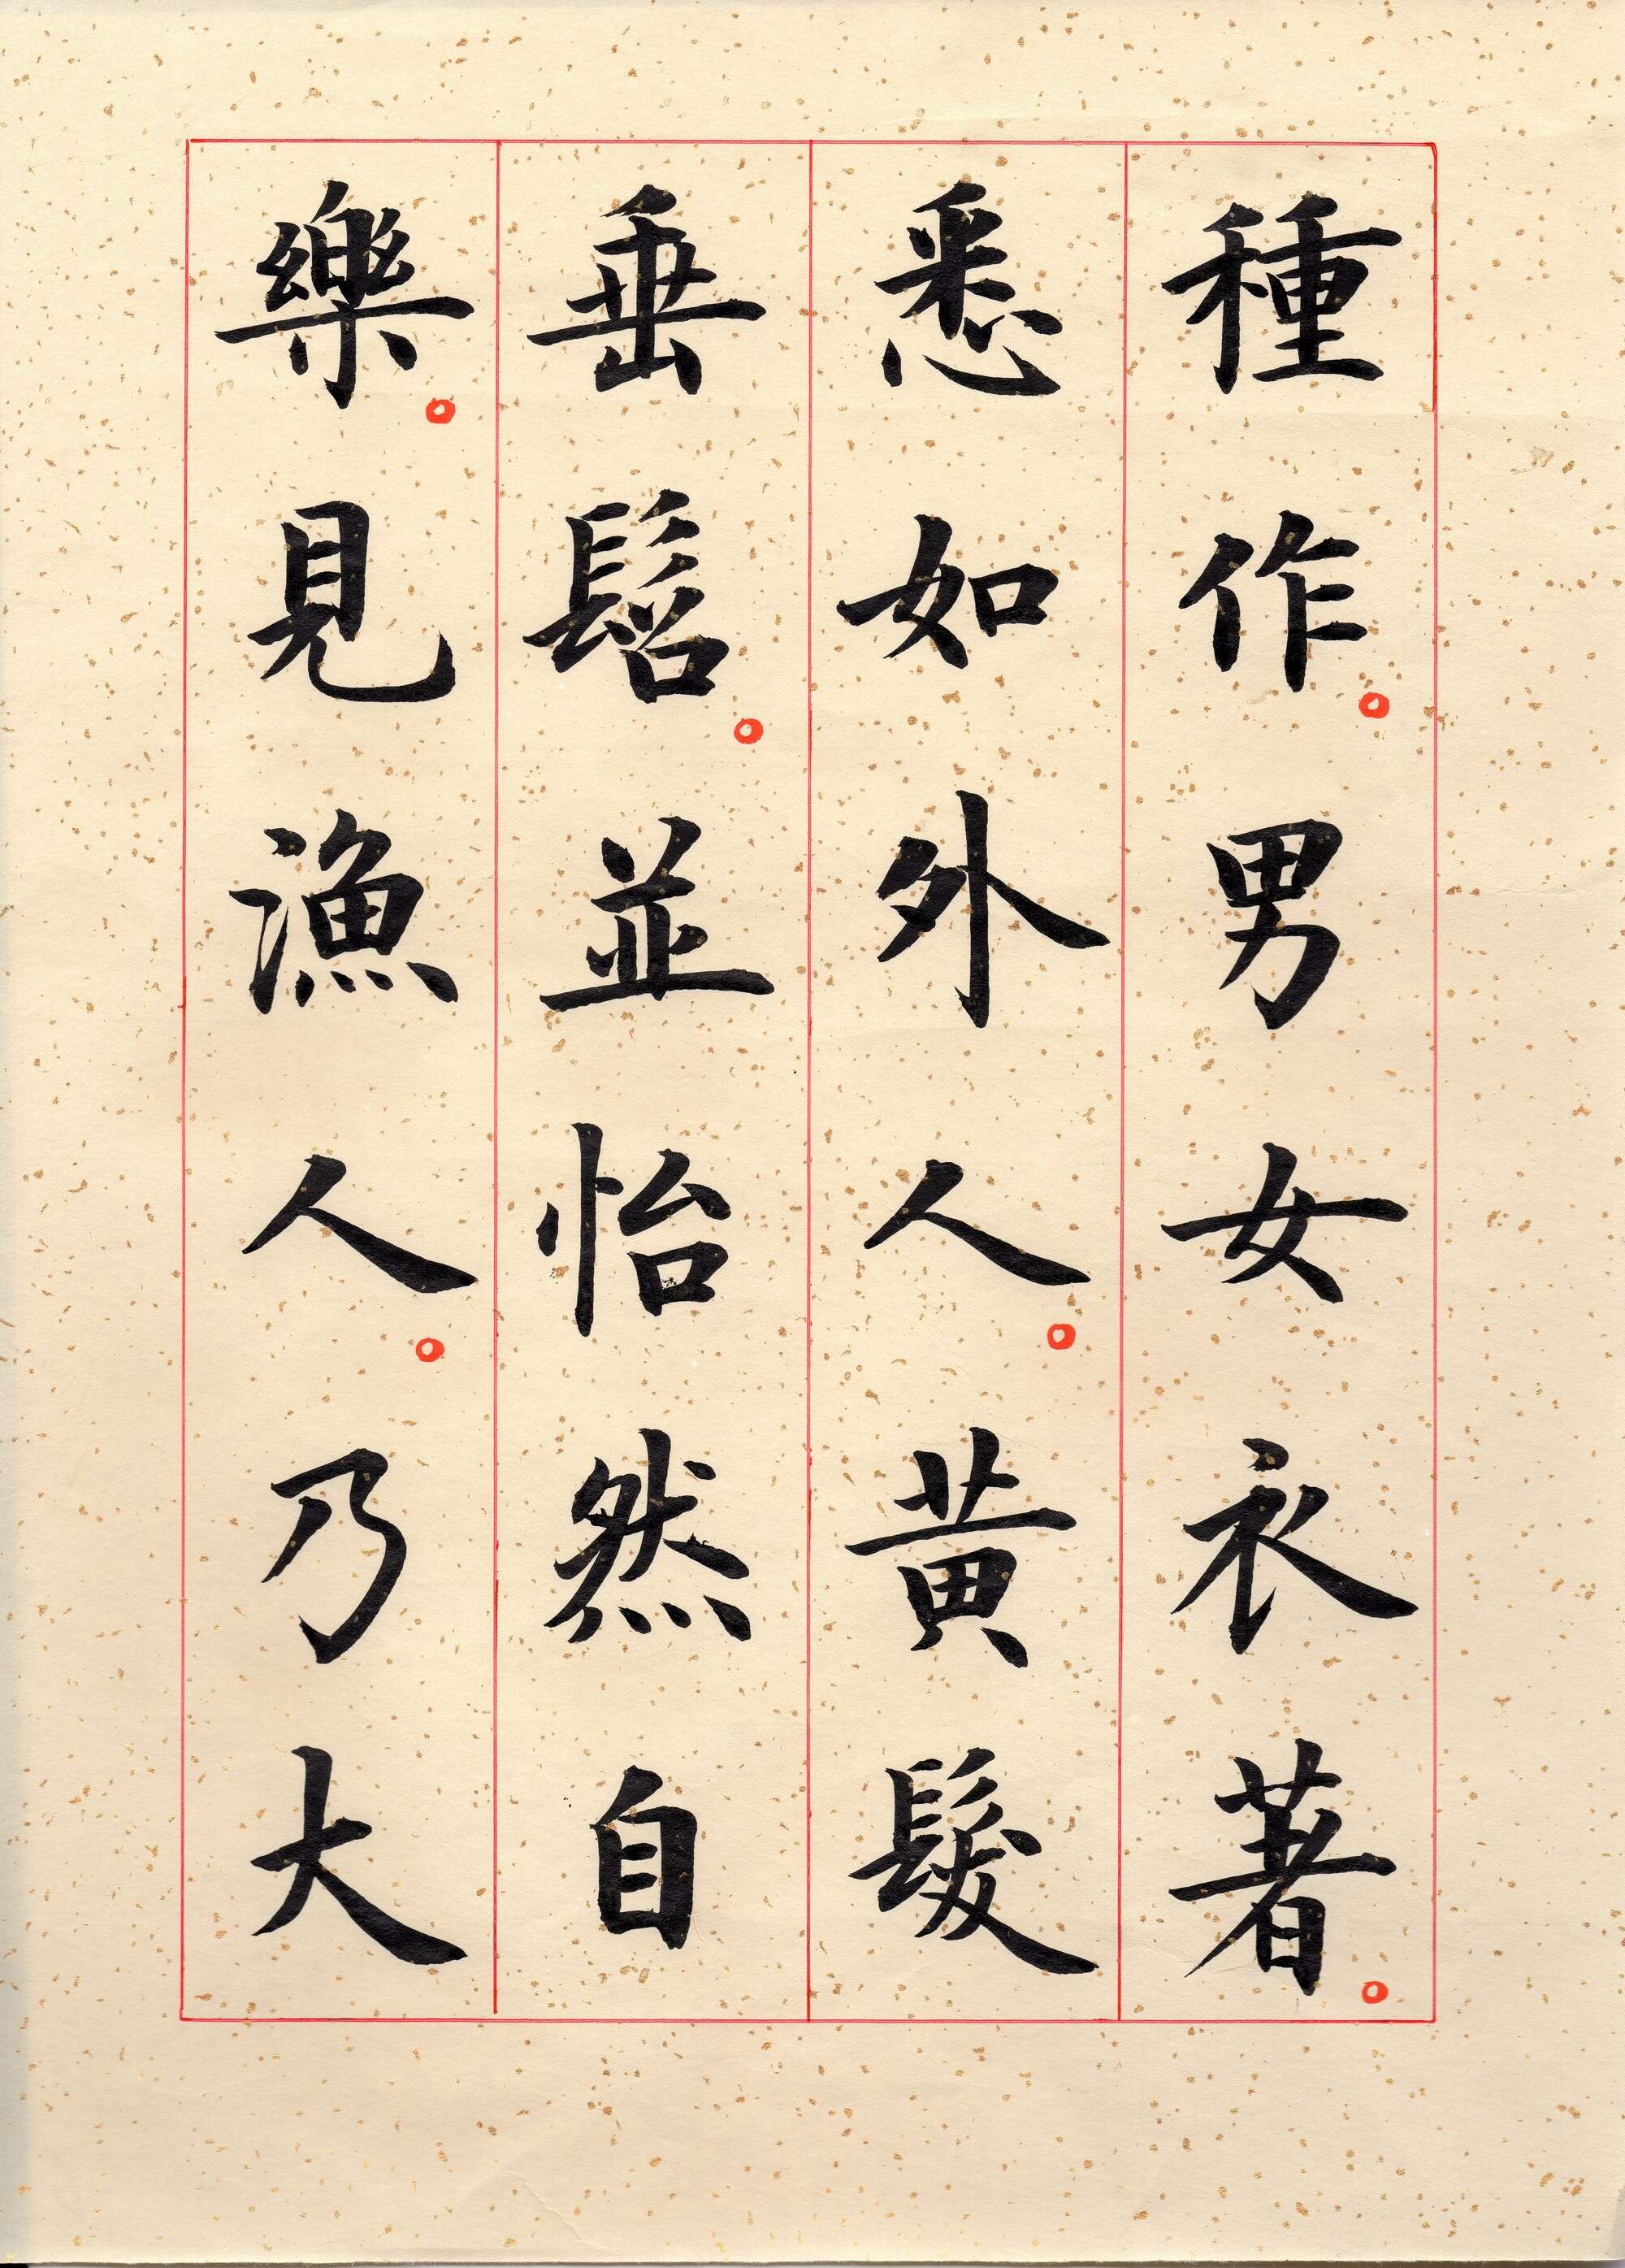 種作。男女衣著。
悉如外人。黃髮
垂髫。並怡然自
樂。見漁人。乃大